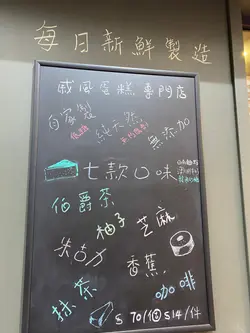 每日新鮮製造
戚風蛋糕專門店
自家製
低糖
純天然
無添加
七款口味
伯爵茶
柚子
芝麻
朱古力
香蕉
抹茶
咖啡
$70/個 $14/件